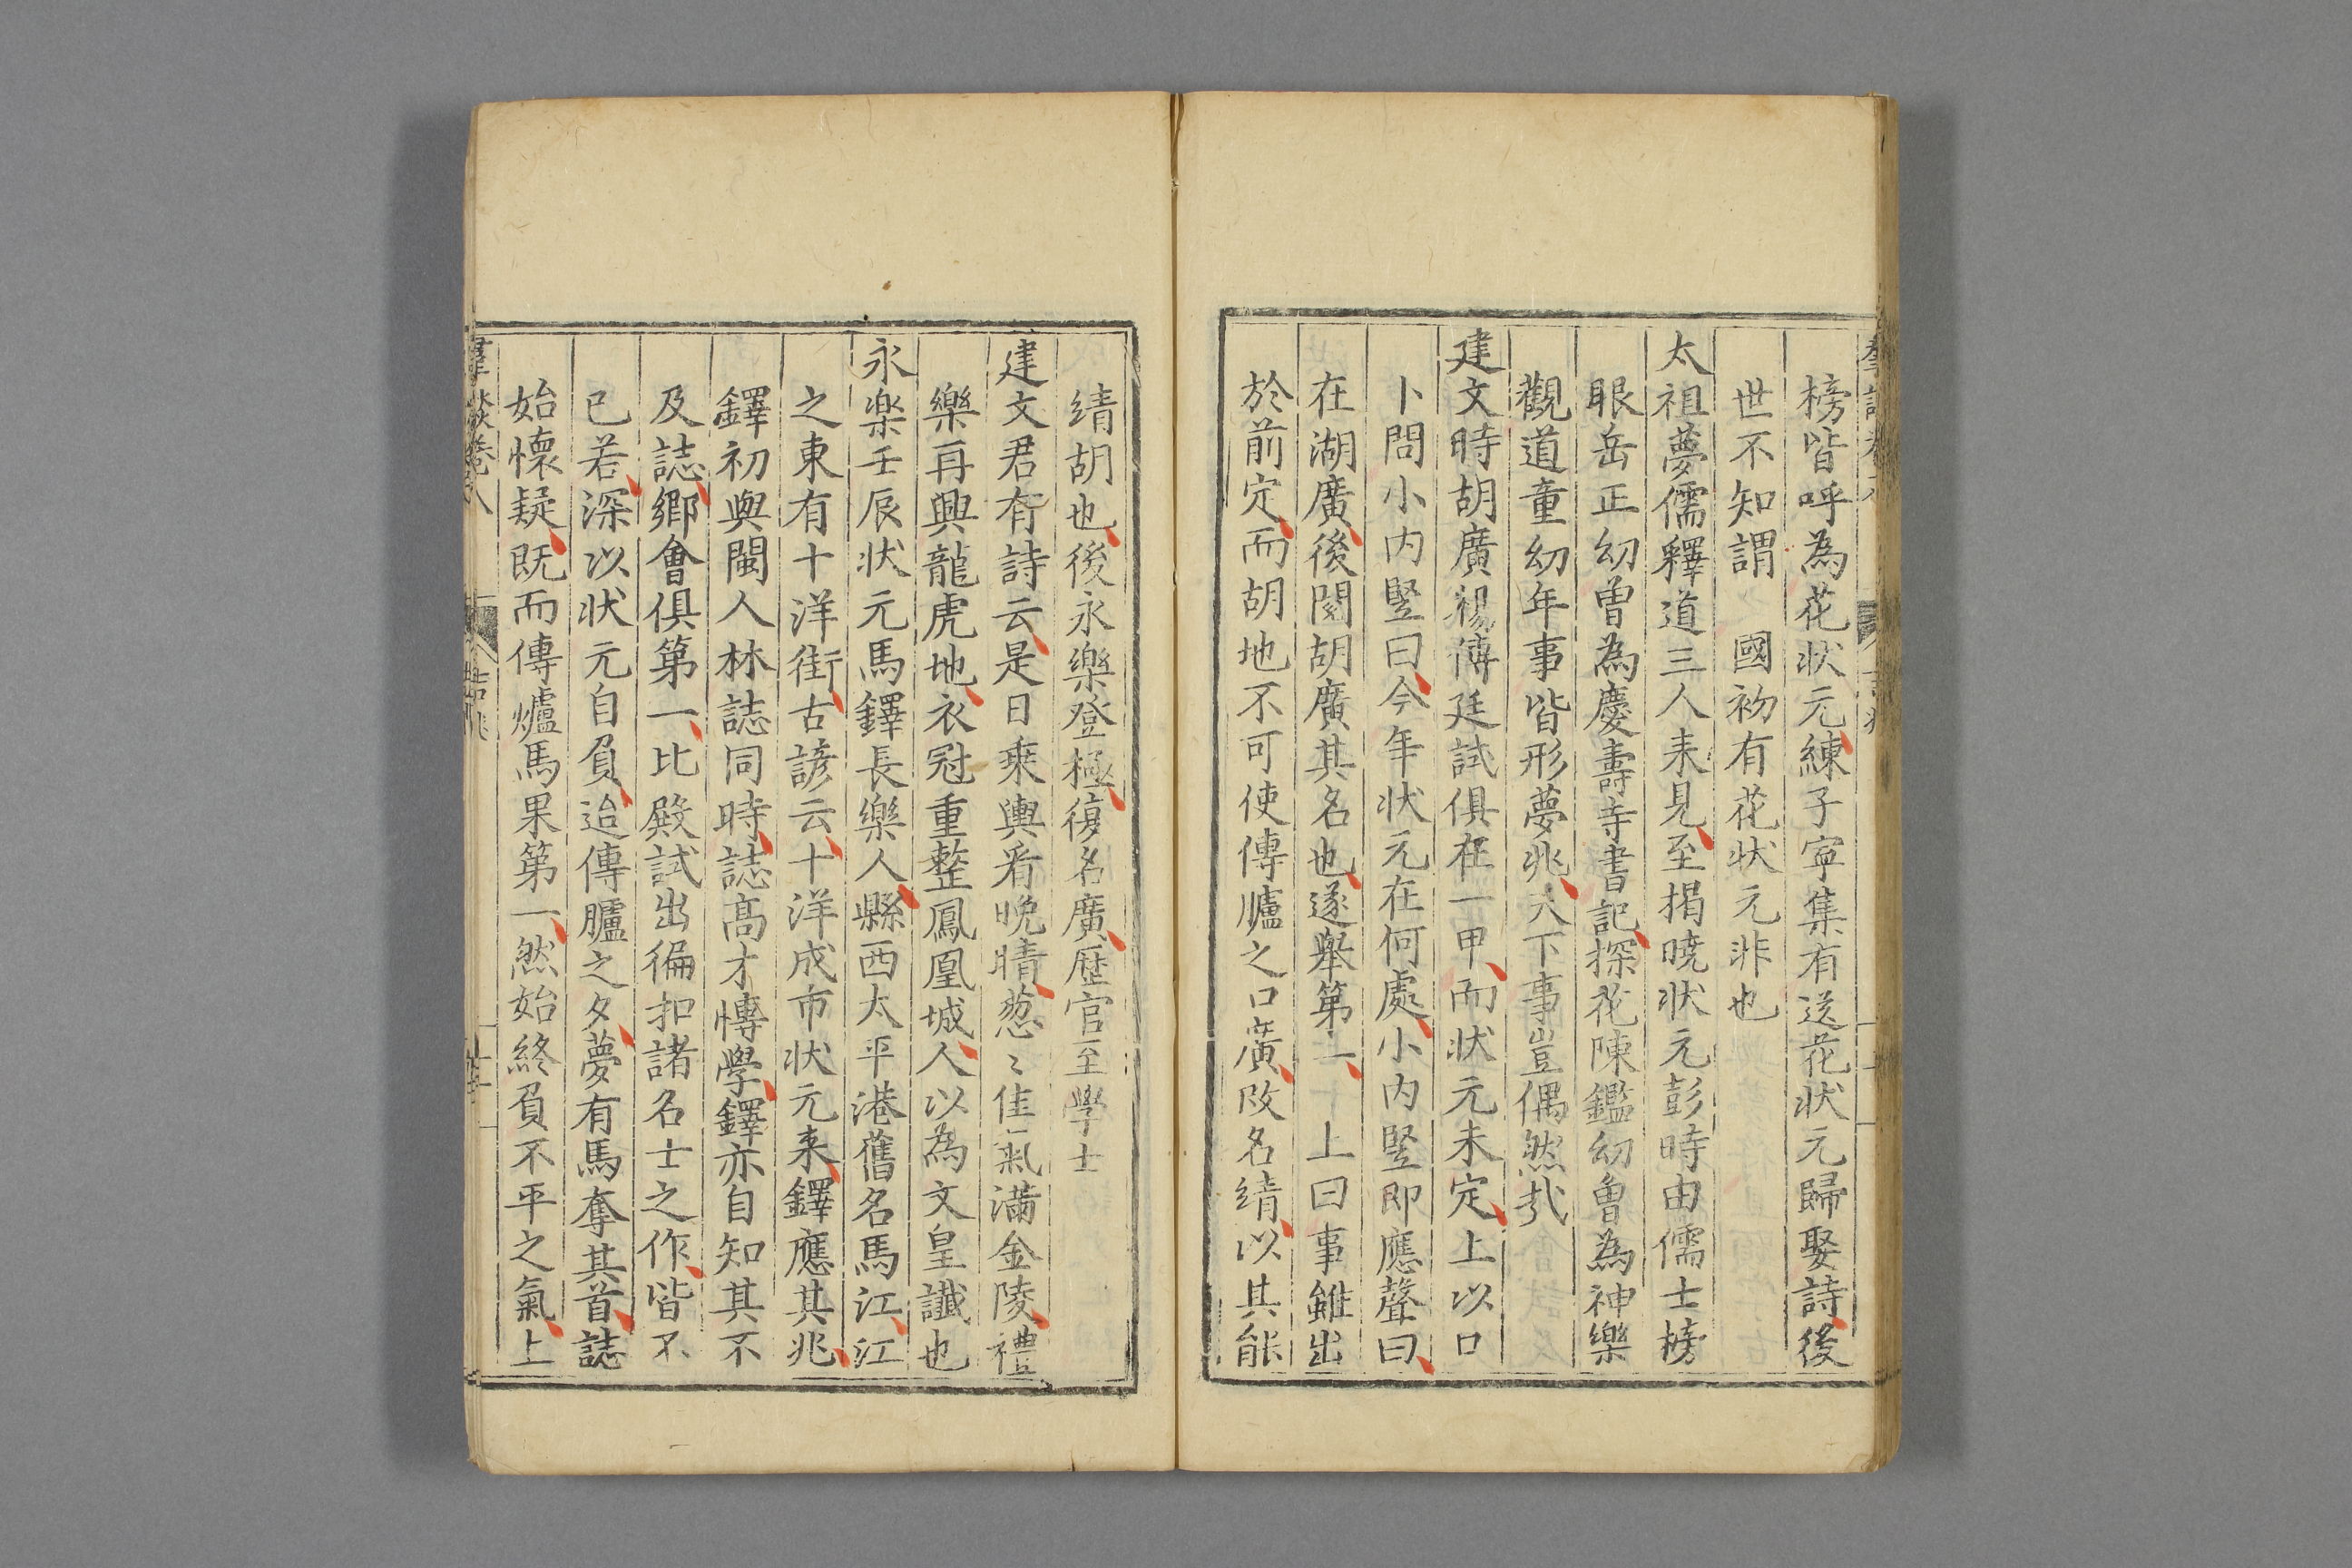 榜皆呼為花狀元練子寧集有送花狀元歸娶詩後
世不知謂 國初有花狀元非也
太祖夢儒釋道三人来見至揭曉狀元彭時由儒士榜
眼岳正幼曽為慶壽寺書記探花陳鑑幼曽為神樂
觀道童幼年事皆形夢兆天下事豈偶然㢤
建文時胡廣楊傅廷試俱在一甲而状元未定上以口
卜問小内竪曰今年状元在何處小内竪即應聲曰
在湖廣後閱胡廣其名也遂舉第一 上曰事雖出
於前定而胡地不可使傳臚之口廣改名靖以其能
靖胡也後永樂登極復名廣歴官至學士
建文君有詩云是日乗輿看晩晴葱〻佳氣滿金陵禮
樂再興龍虎地衣冠重整鳳凰城人以為文皇讖也
永楽壬辰状元馬鐸長樂人縣西太平港舊名馬江江
之東有十洋街古諺云十洋成市状元来鐸應其兆
鐸初與閩人林誌同時誌高才慱學鐸亦自知其不
及誌鄉會俱第一比殿試出徧扣諸名士之作皆不
已若深以状元自負迨傳臚之夕夢有馬奪其首誌
始懷疑既而傳爐馬果第一然始終負不平之氣上
羣談卷八